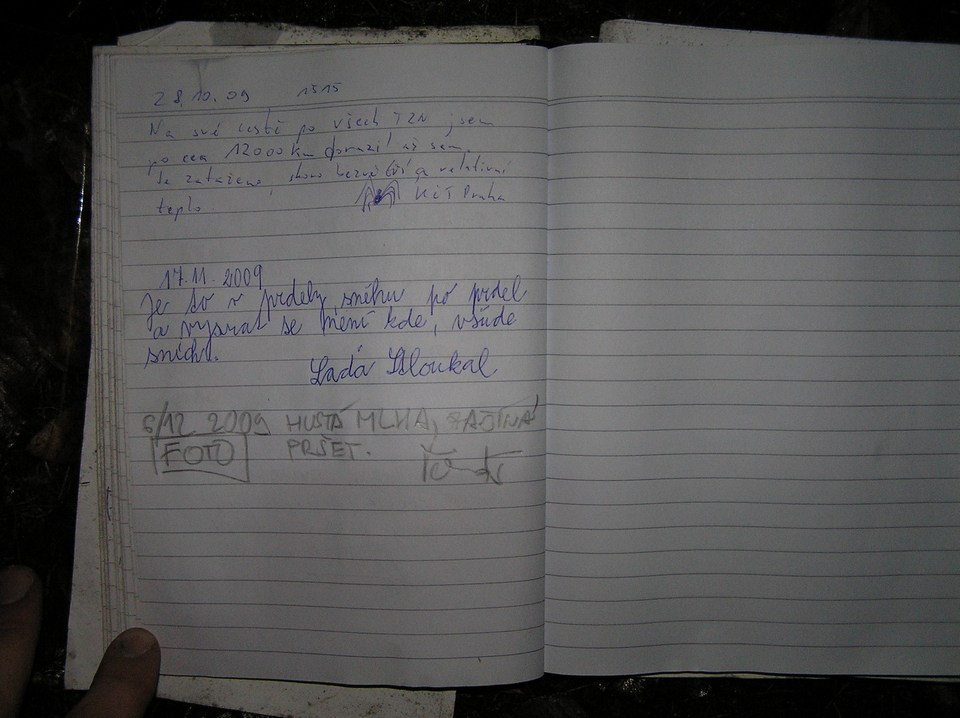 28.10.09 1515
Na své cestě po všech TZN jsem
po cca 12000 km dorazil až sem.
Je zataženo, skoro bezvětří a relativní
teplo. KČT Praha
17.11.2009
Je to v prdely, sněhu po prdel
a vysrat se není kde, všude
sníh.
Lada
6/12 2009 HUSTÁ MLHA, ZAČÍNÁ
FOTO PRŠET.